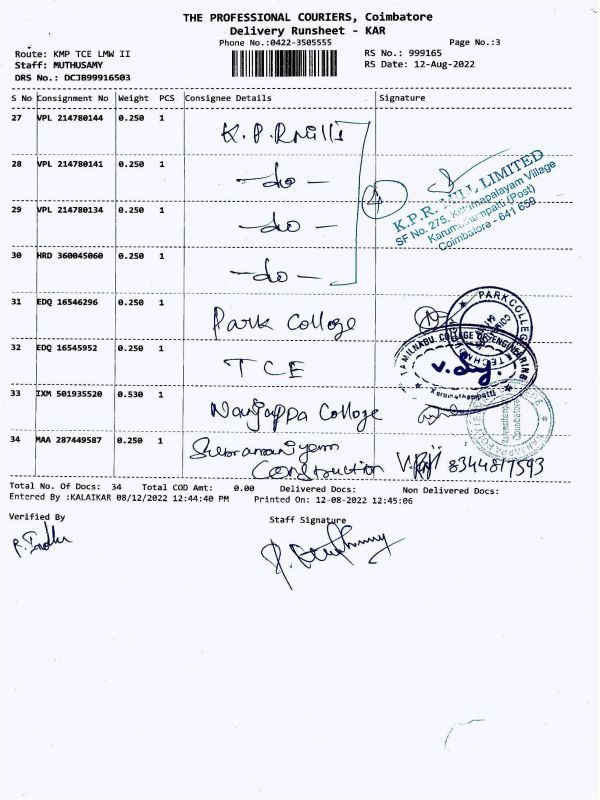 THE PROFESSIONAL COURIERS, Coimbatore
Delivery Runsheet - KAR
Phone No.:0422-3505555
Page No.:3
Route: KMP TCE LMW II
RS No.: 999165
Staff: MUTHUSAMY
RS Date: 12-Aug-2022
DRS No.: DCJB99916503
S No Consignment No Weight PCS Consignee Details Signature
27 VPL 214780144 0.250 1 K.P.R mills
28 VPL 214780141 0.250 1 -do-
29 VPL 214780134 0.250 1 -do-
30 HRD 360045060 0.250 1 -do-
4
K.P.R. MILL LIMITED
SF No. 275, Kittampalayam Village
Karumathampatti (Post)
Coimbatore - 641 659
31 EDQ 16546296 0.250 1 Park College
PARK COLLEGE
32 EDQ 16545952 0.250 1 TCE
TAMILNADU COLLEGE OF ENGINEERING
Karumathampatti
33 IXM 501935520 0.530 1 Nanjappa College
Coimbatore
34 MAA 287449587 0.250 1 Subramaniyam
Construction 8344817593
Total No. Of Docs: 34 Total COD Amt: 0.00 Delivered Docs: Non Delivered Docs:
Entered By :KALAIKAR 08/12/2022 12:44:40 PM Printed On: 12-08-2022 12:45:06
Verified By
Staff Signature